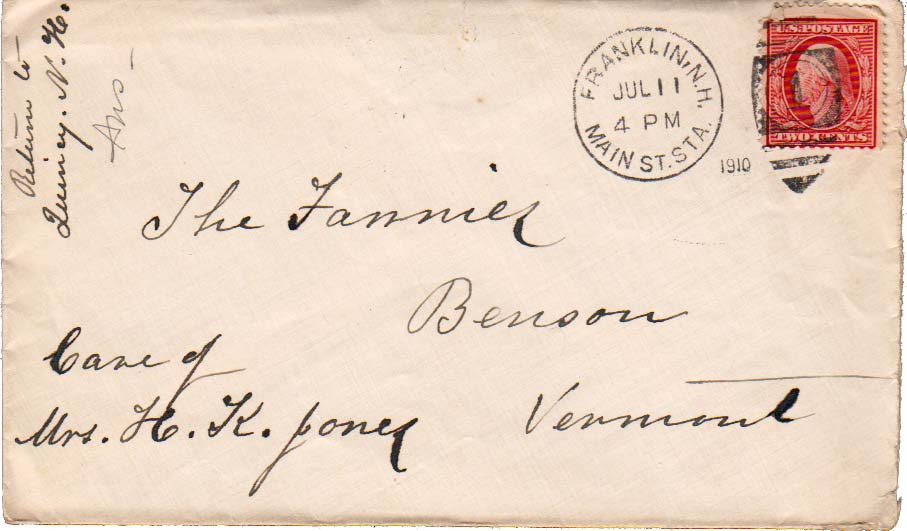 Return to
Quincy, N. H.
Ans -
FRANKLIN, N.H.
JUL 11
4 PM
MAIN ST. STA.
1910
U.S. POSTAGE
TWO CENTS
1
The Fannies
Benson
Vermont
Care of
Mrs. H. K. Jones